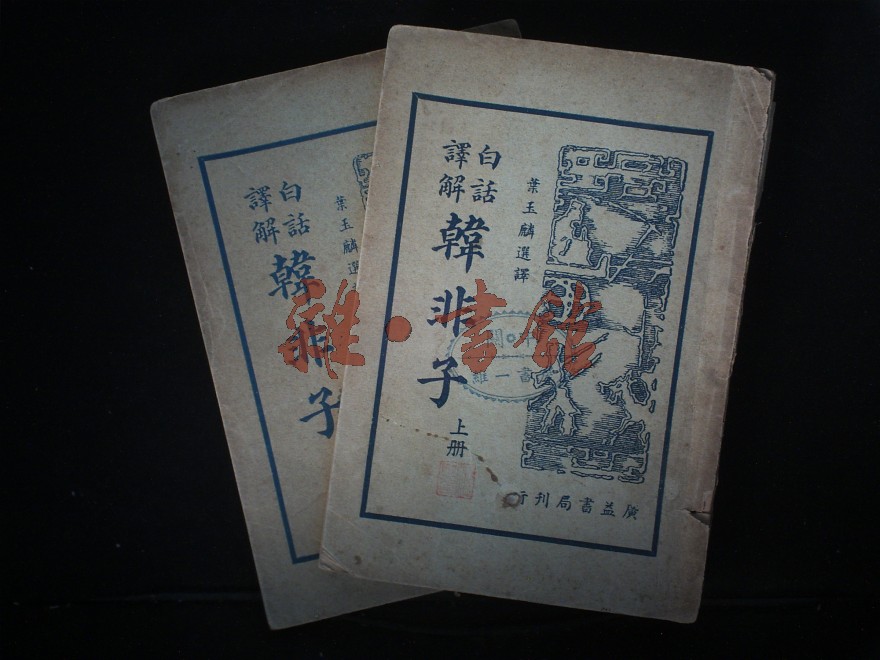 白話
譯解
韓非子
上册
葉玉麟選譯
廣益書局刊行
白話
譯解
韓非子
葉玉麟選
雜·書館